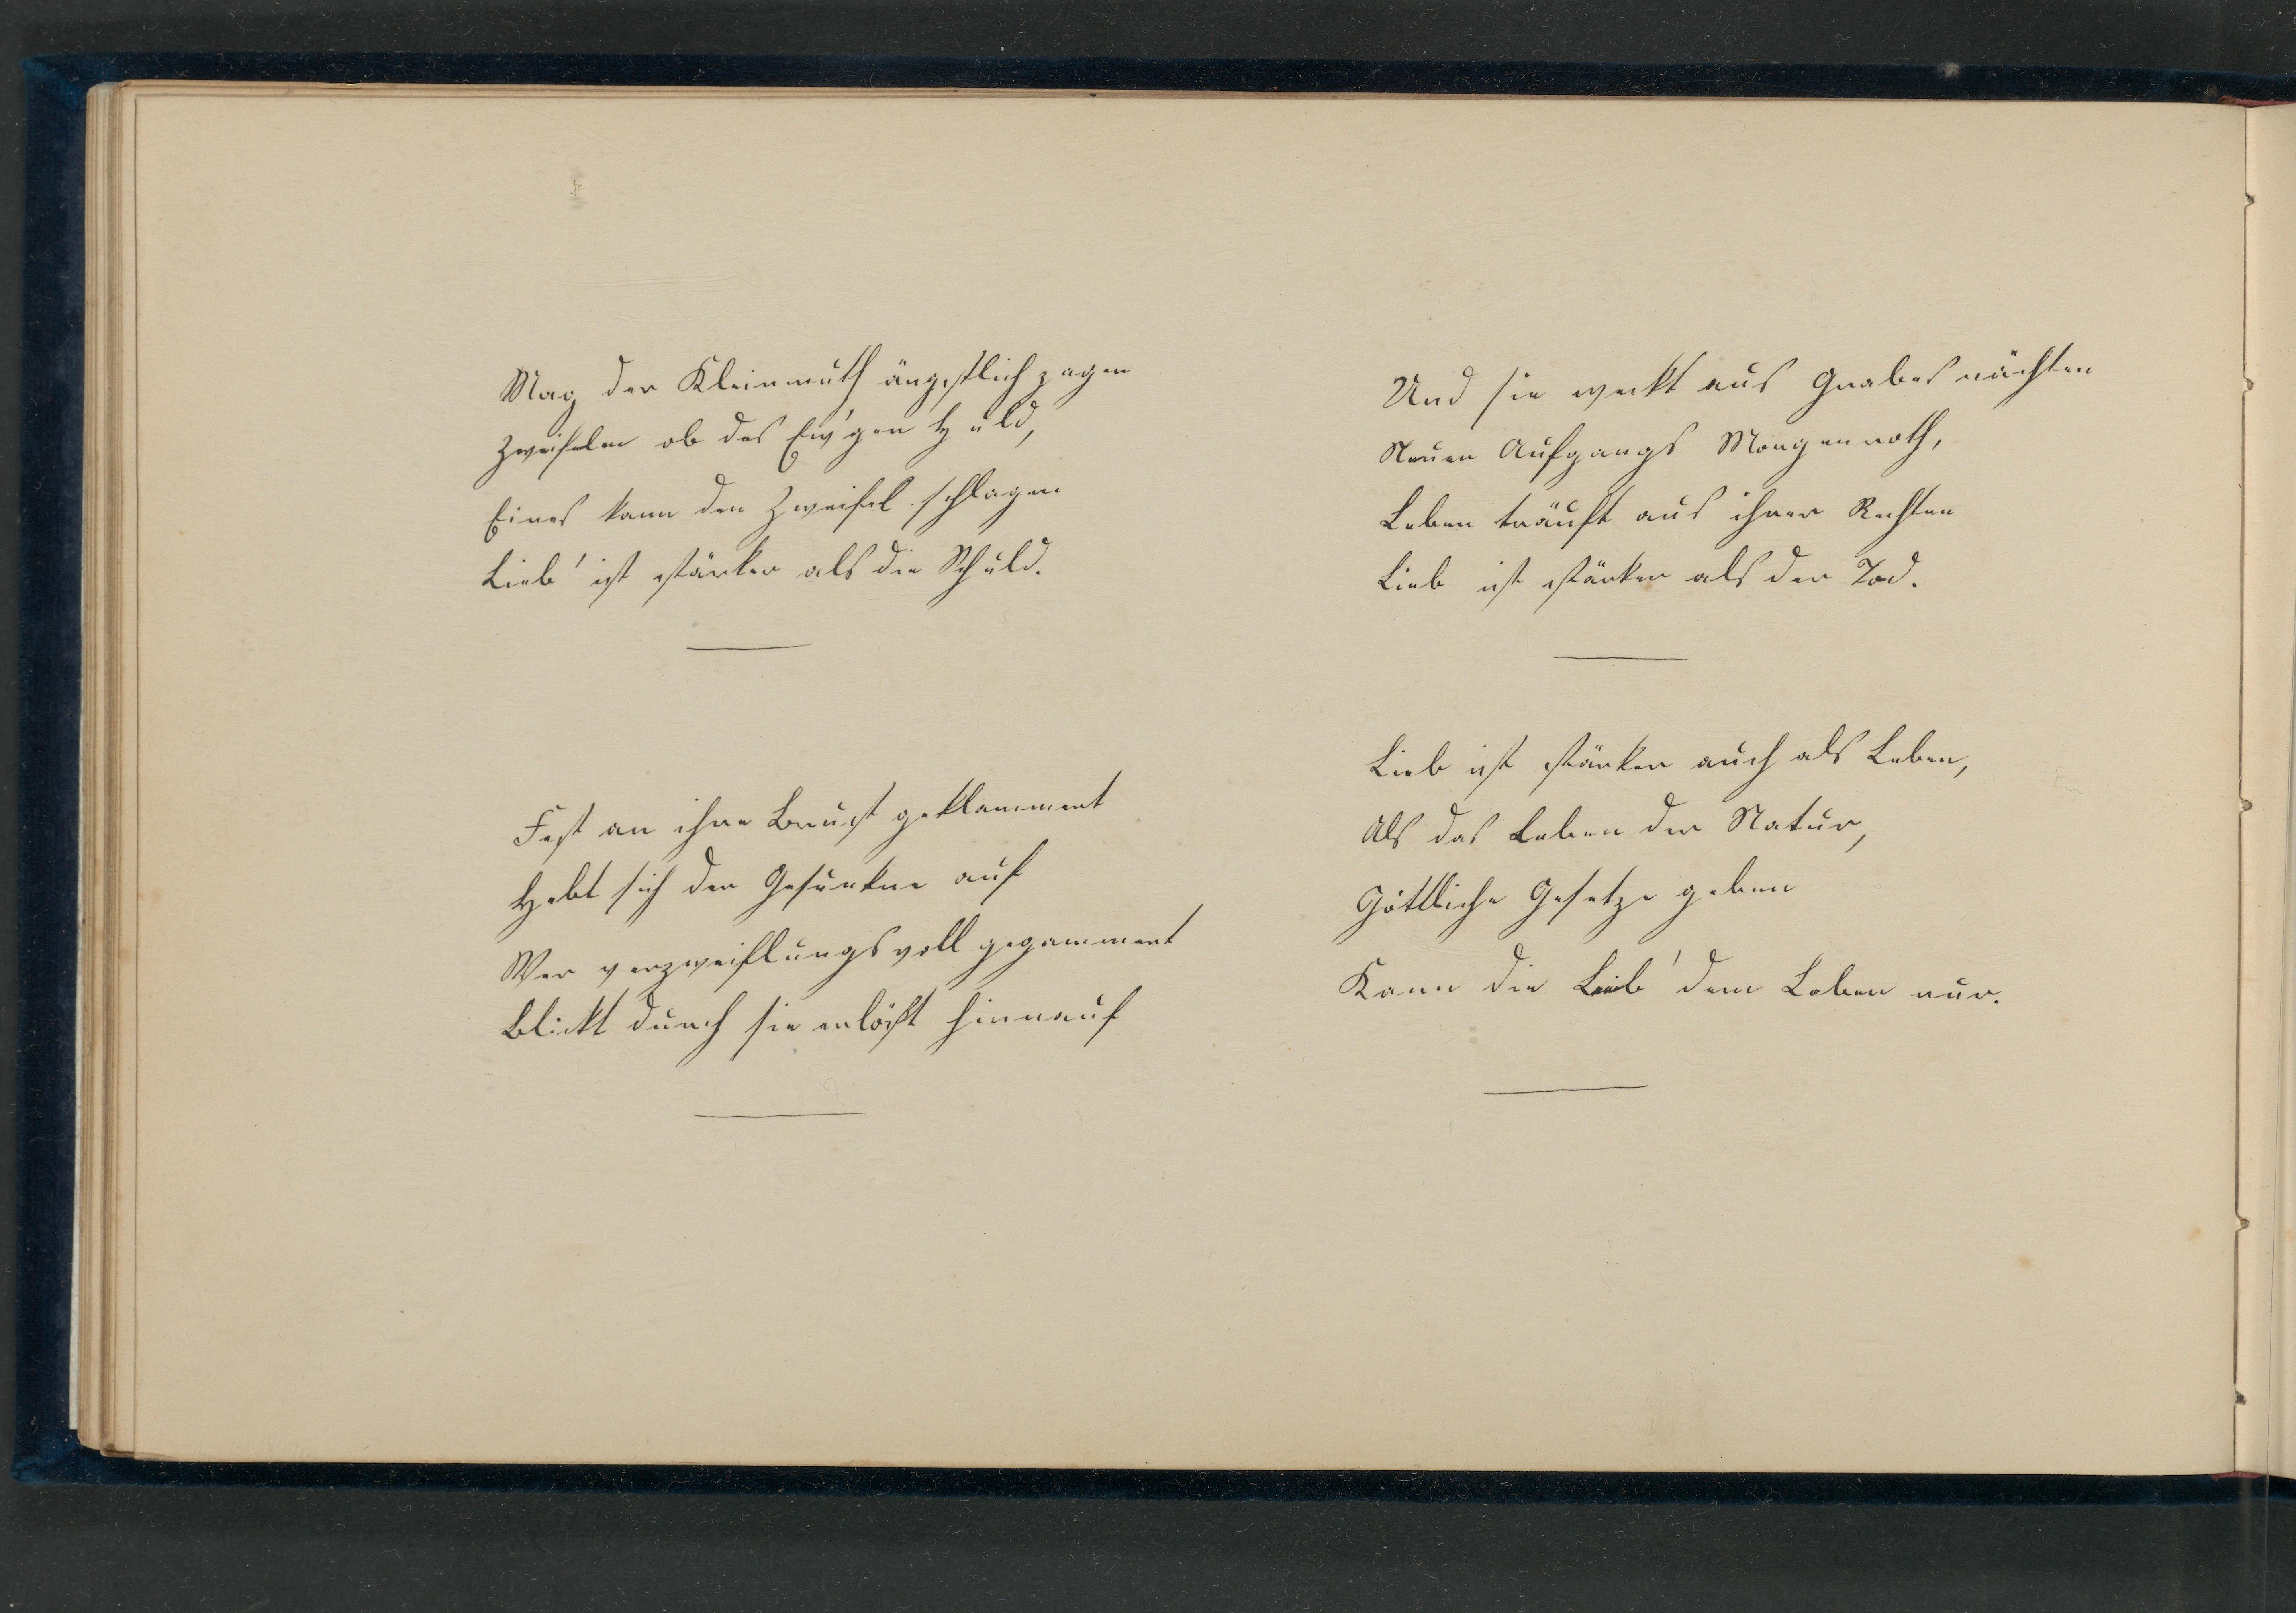 Mag der Kleinmuth ängstlich zagen
Zweifeln ob des Ew'gen Huld,
Eines kann den Zweifel schlagen
Lieb' ist stärker als die Schuld.
Fest an ihre Brust geklammert
Hebt sich der Gesunkne auf
Wer verzweiflungsvoll gejammert
Blickt durch sie erlößt hinnauf
Und sie weckt aus Grabes nächten
Neuen Aufgangs Morgenroth,
Leben träuft aus ihrer Rechten
Lieb ist stärker als der Tod.
Lieb ist stärker auch als Leben,
Als das Leben der Natur,
Göttliche Gesetze geben
Kann die Lieb' dem Leben nur.